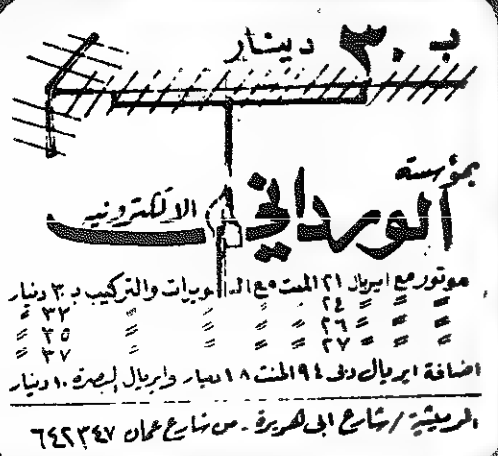 بـ ٣٠ دينار
بمؤسسة
الورداني الالكترونيه
موتور مع ايريال ٢١ المنت مع والتركيب بـ ٣٠ دنيار
〃 〃 〃 ٢٤ 〃 〃 〃 ٣٢ 〃
〃 〃 〃 ٢٦ 〃 〃 〃 ٣٥ 〃
〃 〃 〃 ٢٧ 〃 〃 〃 ٣٧ 〃
اضافة ايريال دبى ٩٤ المنت ١٨ دينار وايريال البصرة ١٠ دنيار
/ شارع ابى هريرة - من شارع عمان ٦٤٢٣٤٧